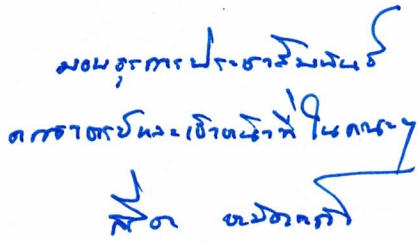 มอบธุรการประชาสัมพันธ์
คณาจารย์และเจ้าหน้าที่ในคณะฯ